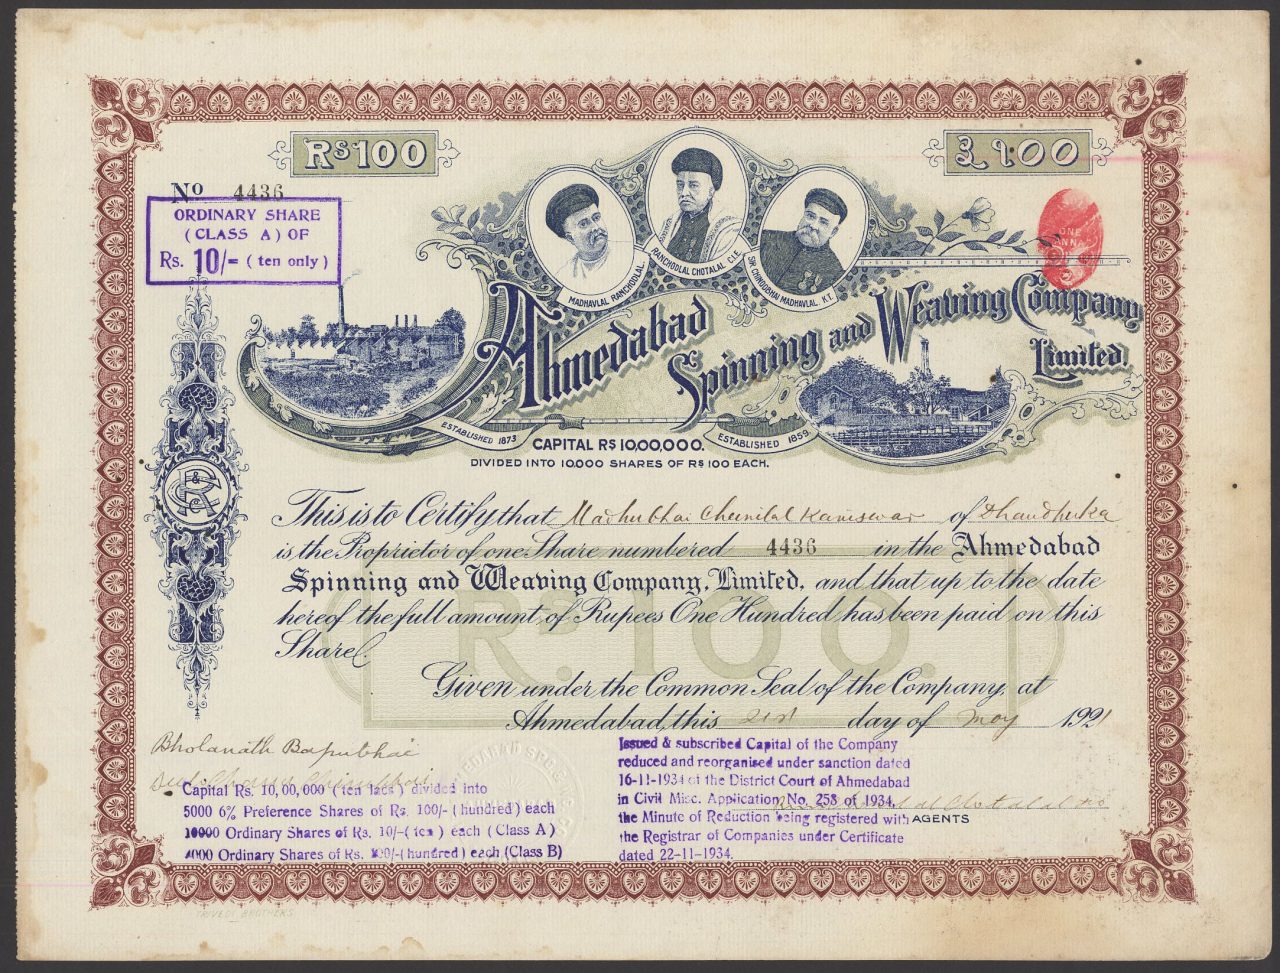 Rs 100
રૂ ૧૦૦
No 4436
ORDINARY SHARE
(CLASS A) OF
Rs. 10/= (ten only)
MADHAVLAL RANCHODLAL.
RANCHODLAL CHOTALAL. C.I.E.
SIR CHINOOBHAI MADHAVLAL. KT.
ONE
ANNA
Ahmedabad Spinning and Weaving Company
Limited.
ESTABLISHED 1873
CAPITAL RS 10,00,000.
ESTABLISHED 1859.
DIVIDED INTO 10,000 SHARES OF RS 100 EACH.
This is to Certify that Madhubhai Chunilal of Dhandhuka
is the Proprietor of one Share numbered 4436 in the Ahmedabad
Spinning and Weaving Company, Limited, and that up to the date
hereof the full amount of Rupees One Hundred has been paid on this
Share
Rs. 100.
Given under the Common Seal of the Company, at
Ahmedabad, this 21st day of May 1921
Bholanath Bapubhai
Capital Rs. 10,00,000 (ten lacs) divided into
5000 6% Preference Shares of Rs. 100/- (hundred) each
10000 Ordinary Shares of Rs. 10/- (ten) each (Class A)
4000 Ordinary Shares of Rs. 100/- (hundred) each (Class B)
Issued & subscribed Capital of the Company
reduced and reorganised under sanction dated
16-11-1934 of the District Court of Ahmedabad
in Civil Misc. Application No. 253 of 1934,
the Minute of Reduction being registered with
the Registrar of Companies under Certificate
dated 22-11-1934.
AGENTS
TRIVEDI BROTHERS